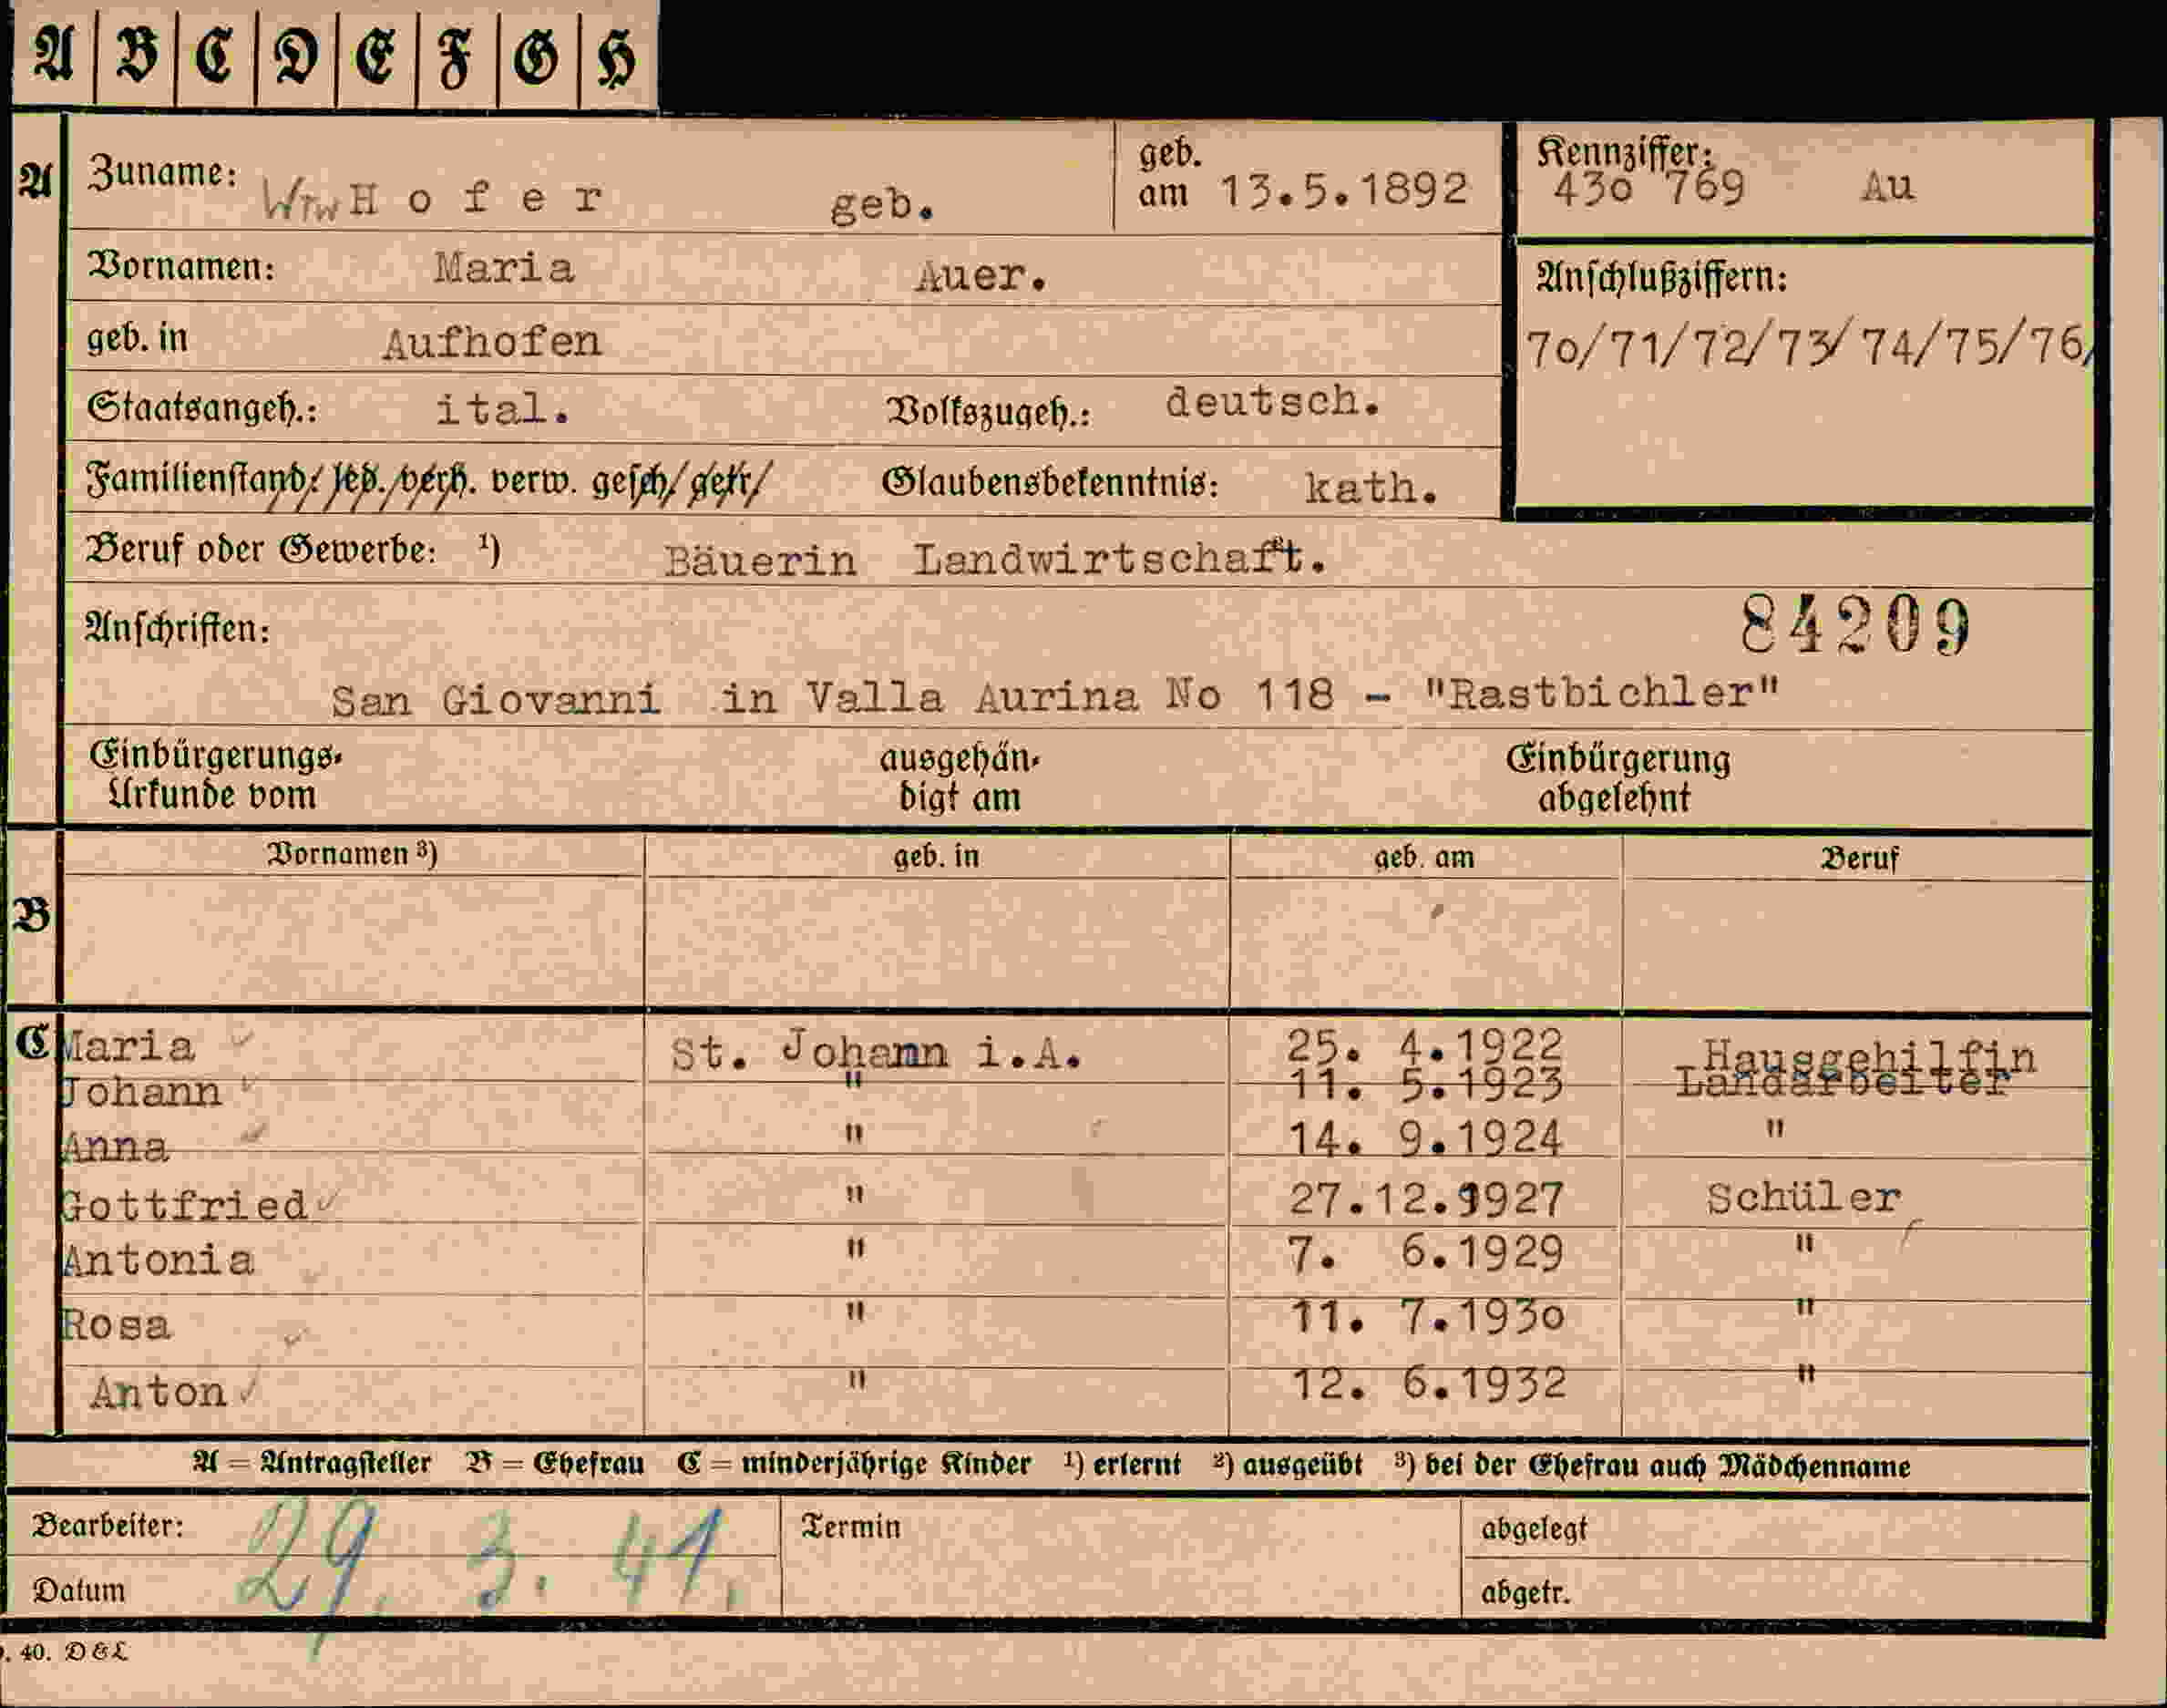 A B C D E F G H
A Zuname: Wtw H o f e r geb. geb. am 13.5.1892 Kennziffer: 430 769 Au
Vornamen: Maria Auer. Anschlußziffern:
geb. in Aufhofen 70/71/72/73/74/75/76/
Staatsangeh.: ital. Volkszugeh.: deutsch.
Familienstand: led. verh. verw. gesch. getr. Glaubensbekenntnis: kath.
Beruf oder Gewerbe: ¹) Bäuerin Landwirtschaft.
Anschriften: 84209
San Giovanni in Valla Aurina No 118 - "Rastbichler"
Einbürgerungs- ausgehän- Einbürgerung
Urkunde vom digt am abgelehnt
Vornamen ³) geb. in geb. am Beruf
B
C Maria St. Johann i.A. 25. 4.1922 Hausgehilfin
Johann " 11. 5.1923 Landarbeiter
Anna " 14. 9.1924 "
Gottfried " 27.12.1927 Schüler
Antonia " 7. 6.1929 "
Rosa " 11. 7.1930 "
Anton " 12. 6.1932 "
A = Antragsteller B = Ehefrau C = minderjährige Kinder ¹) erlernt ²) ausgeübt ³) bei der Ehefrau auch Mädchenname
Bearbeiter: Termin abgelegt
29. 3. 41.
Datum abgetr.
. 40. DEL